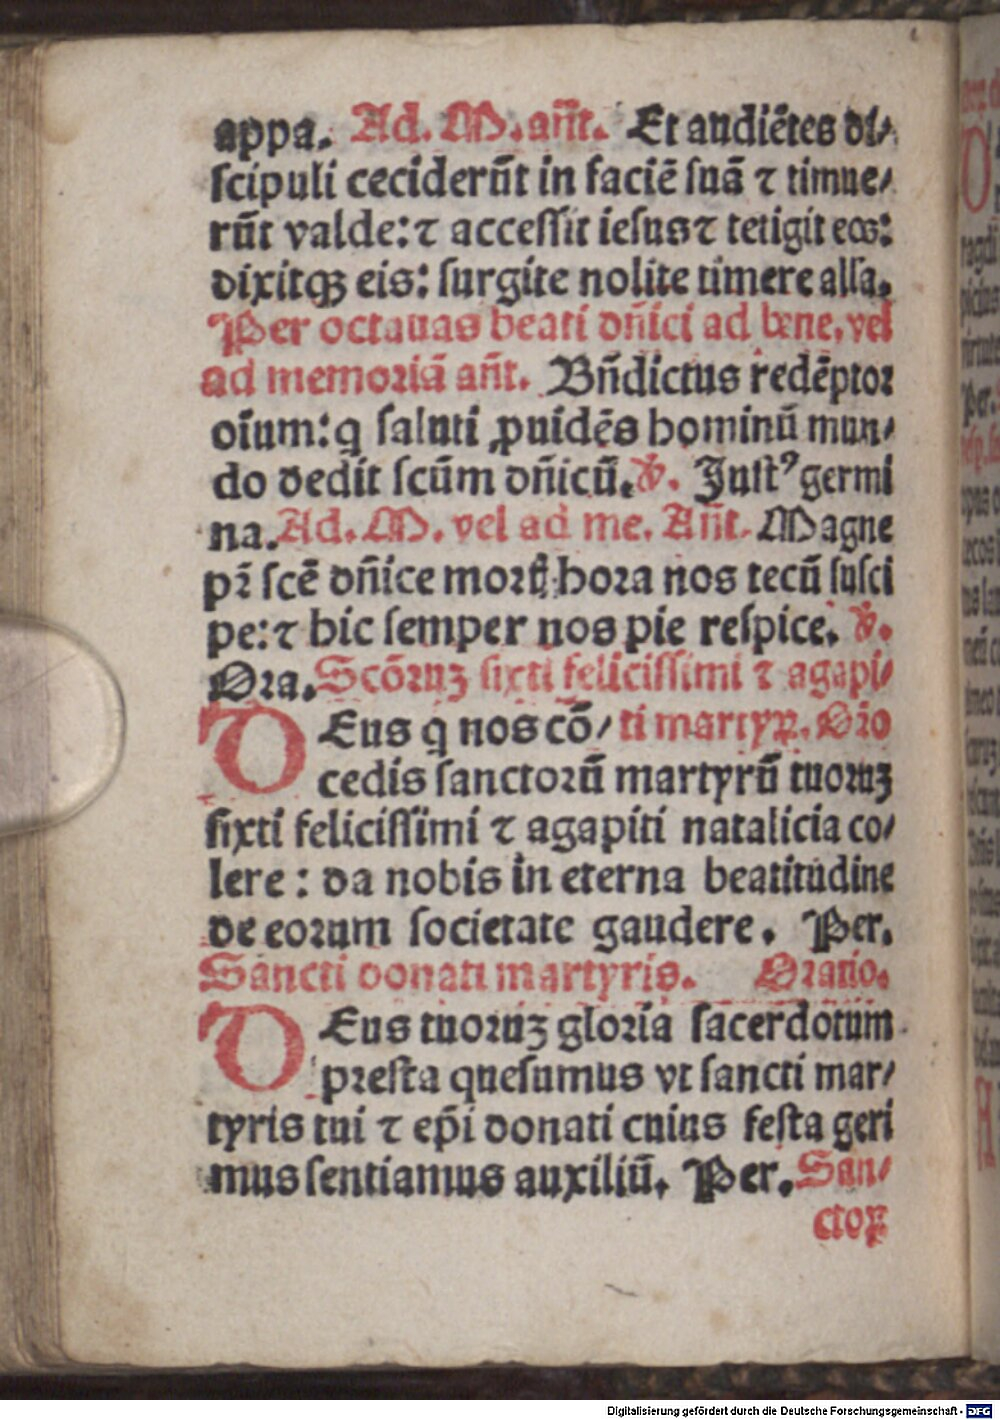 appa. Ad. M. an̄t. Et audiētes di/
ſcipuli ceciderūt in faciē ſuā ⁊ timue/
rūt valde: ⁊ acceſſit ieſus ⁊ tetigit eos:
dixitqꝫ eis: ſurgite nolite timere alla.
Per octauas beati dn̄ici ad bene. vel
ad memoriā an̄t. Bn̄dictus redēptor
oīum: q ſaluti ꝓuidēs hominū mun/
do dedit ſcūm dn̄icū. ꝟ. Juſtꝰ germi
na. Ad. M. vel ad me. An̄t. Magne
pr̄ ſcē dn̄ice mortꝭ hora nos tecū ſuſci
pe: ⁊ hic ſemper nos pie reſpice. ꝟ.
Ora. Scōruꝫ ſixti feliciſſimi ⁊ agapi/
DEus q nos cō/ ti martyꝝ. Or̄o
cedis ſanctorū martyrū tuoruꝫ
ſixti feliciſſimi ⁊ agapiti natalicia co/
lere: da nobis in eterna beatitudine
de eorum ſocietate gaudere. Per.
Sancti donati martyris. Oratio.
DEus tuoruꝫ gloria ſacerdotum
preſta queſumus vt ſancti mar/
tyris tui ⁊ ep̄i donati cuius feſta geri
mus ſentiamus auxiliū. Per. San/
ctoꝝ
Digitalisierung gefördert durch die Deutsche Forschungsgemeinschaft - DFG